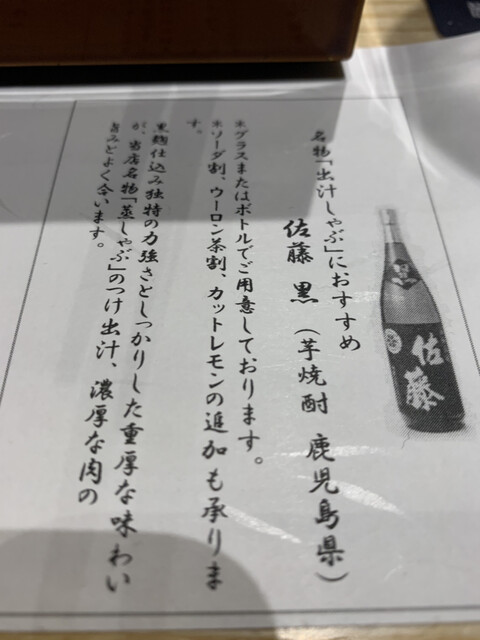 佐藤
名物「出汁しゃぶ」におすすめ
佐藤 黒 （芋焼酎 鹿児島県）
※グラスまたはボトルでご用意しております。
※ソーダ割、ウーロン茶割、カットレモンの追加も承りま
す。
黒麹仕込み独特の力強さとしっかりした重厚な味わい
が、当店名物「蒸しゃぶ」のつけ出汁、濃厚な肉の
旨みとよく合います。